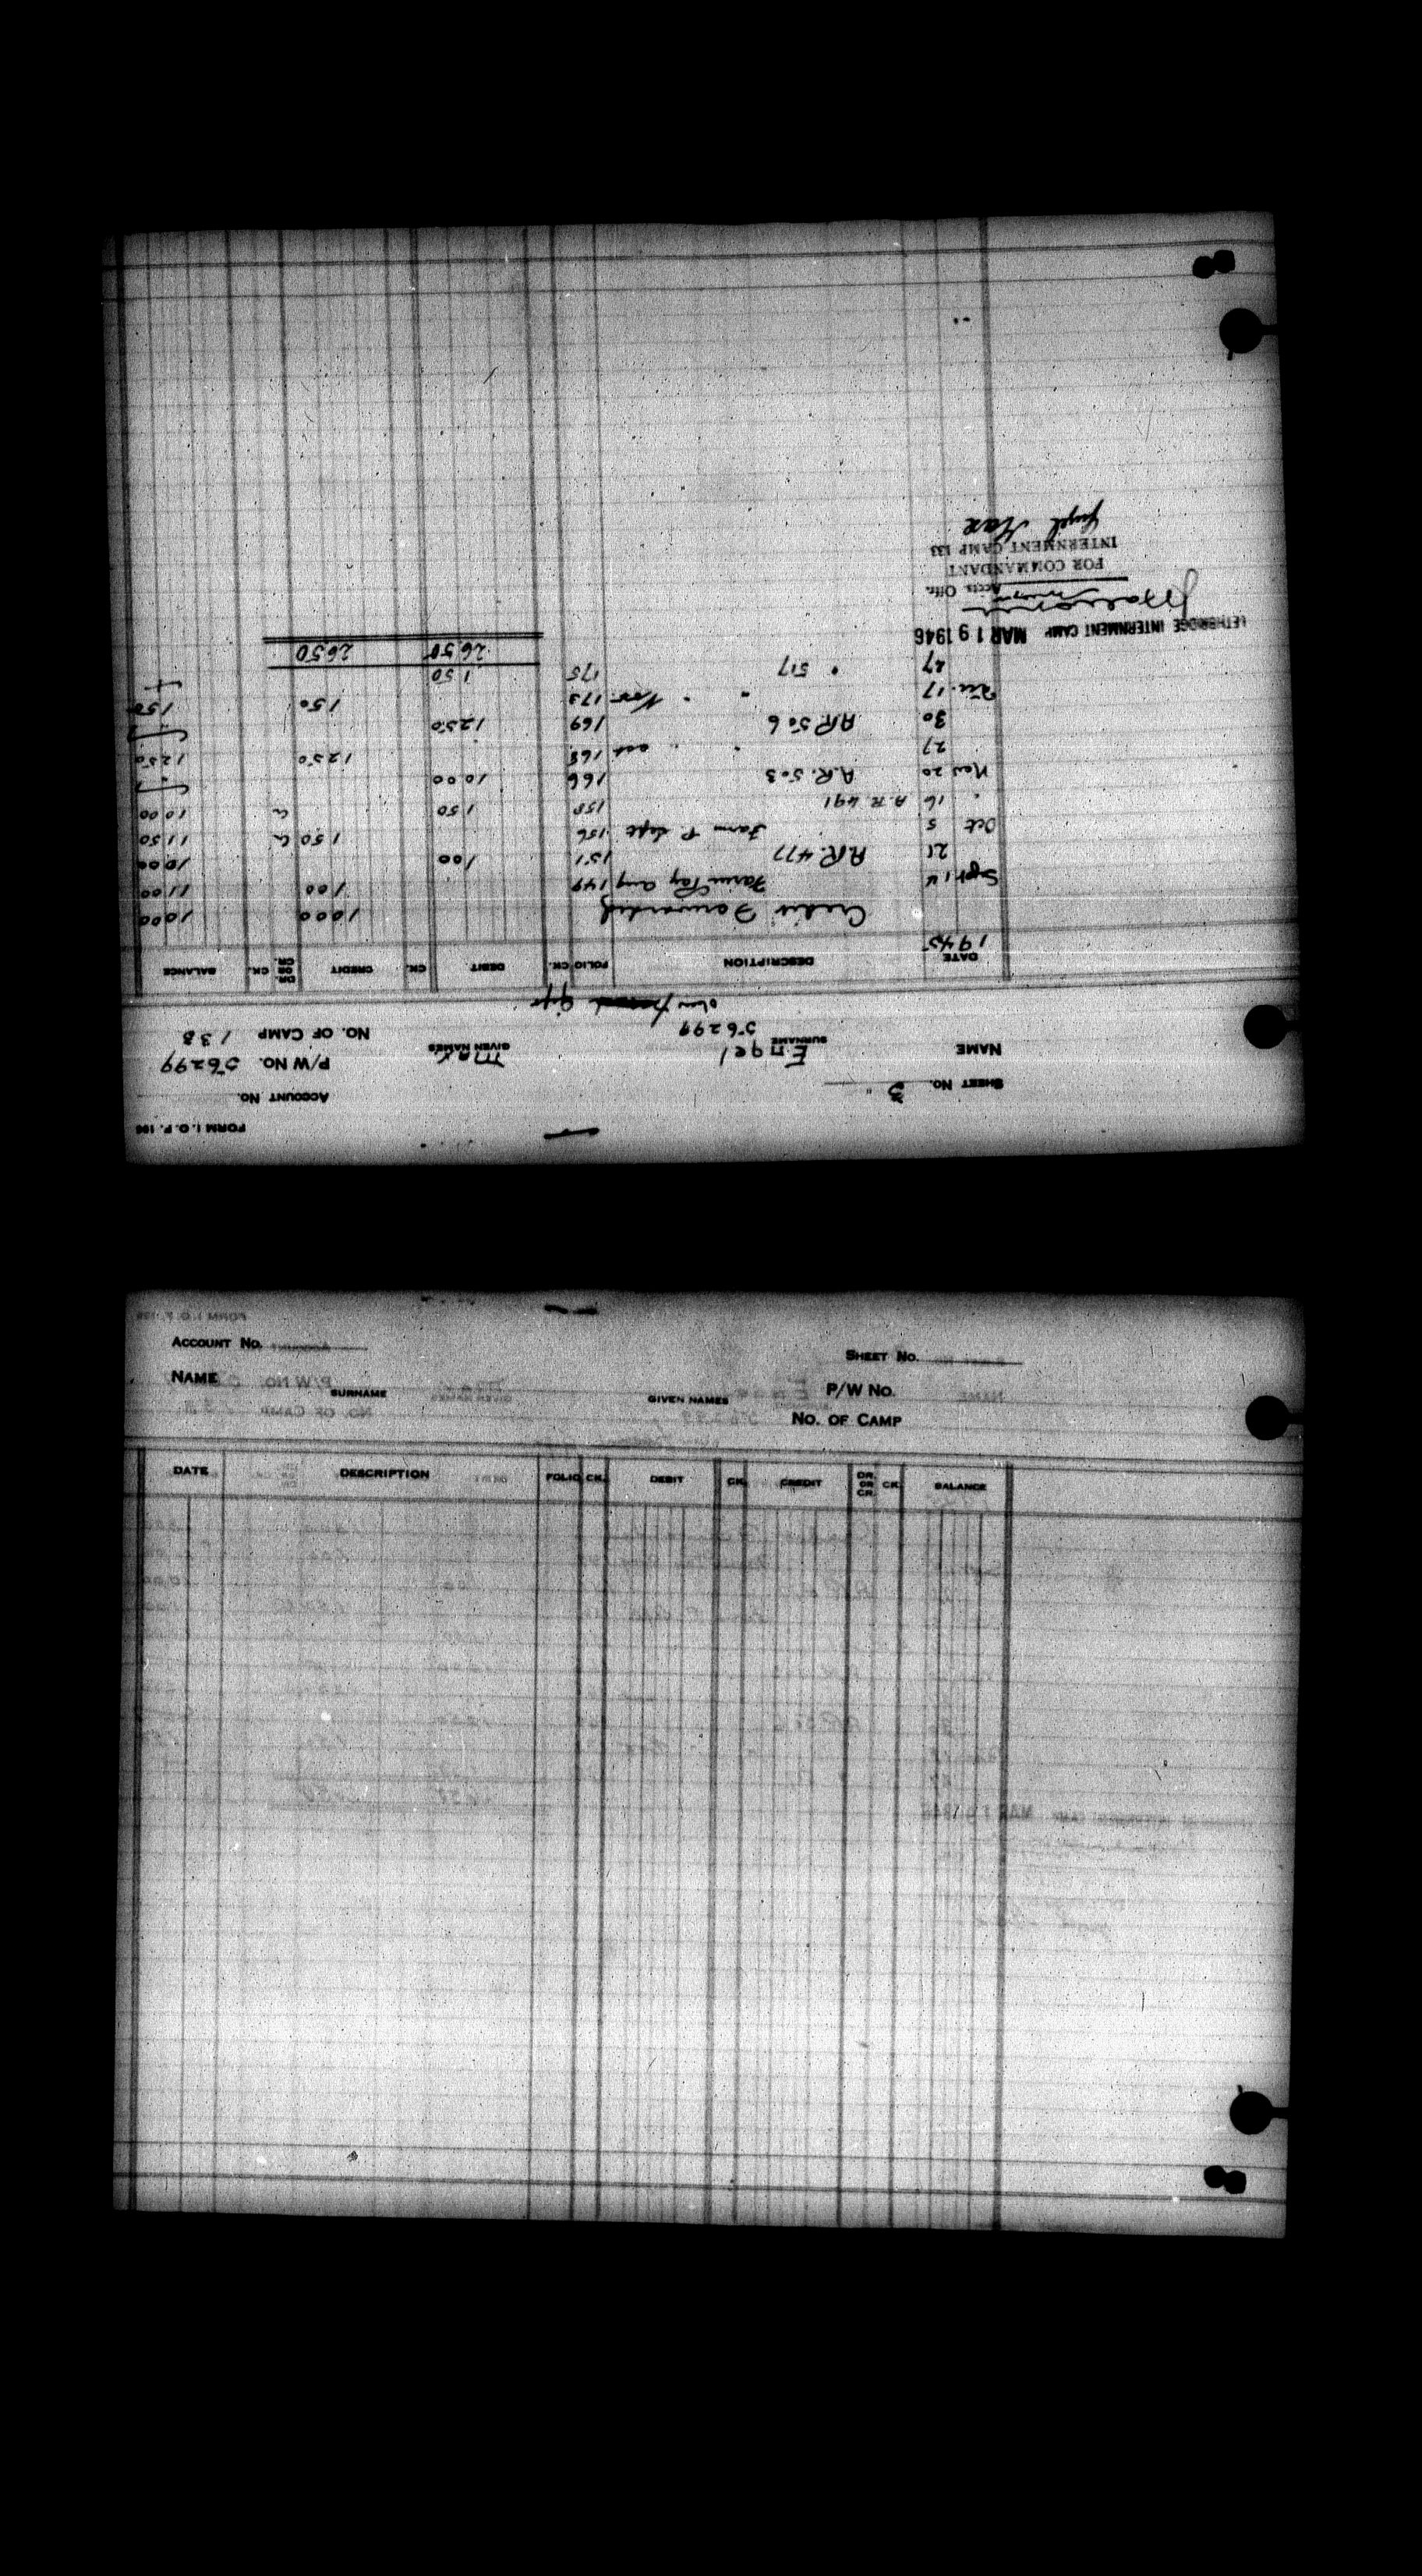 FORM I.O.P. 196
ACCOUNT NO.
SHEET NO. 3
NAME Engel Max P/W NO. 56299
SURNAME GIVEN NAMES
56299 NO. OF CAMP 133
DATE DESCRIPTION FOLIO CK. DEBIT CK. CREDIT DR. OR CR. CK. BALANCE
1945
Credit Forwarded 1000 1000
Sept 14 Farm Pay Aug 149 100 1100
21 A.R. 477 151 100 1000
Oct 5 Farm P. Sept 156 150 1150
" 16 A.R. 491 158 150 1000
Nov 20 A.R. 503 166 1000
27 " " Oct 168 1250 1250
30 A.R. 506 169 1250
Dec. 17 " " Nov. 173 150 150
27 " 517 175 150
2650 2650
LETHBRIDGE INTERNMENT CAMP MAR 19 1946
Accts. Offr.
FOR COMMANDANT
INTERNMENT CAMP 133
Engel Max
FORM I.O.P. 196
ACCOUNT NO.
SHEET NO.
NAME
SURNAME GIVEN NAMES P/W NO.
NO. OF CAMP
DATE DESCRIPTION FOLIO CK. DEBIT CK. CREDIT DR. OR CR. CK. BALANCE